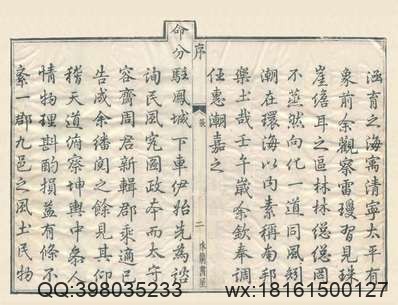 涵育之海寓清寧太平有
象前余觀察雷瓊習見珠
崖儋耳之區林林總總罔
不蒸然向化一道同風矧
潮在環海以內素稱南邦
樂土哉壬午歲余欽奉調
任惠潮嘉之
序
二
命分
駐鳳城下車伊始先為諮
詢民風究國政本而太守
容齋周君新輯郡乘適已
告成余繙閱之餘見其仰
稽天道俯察坤輿中參人
情物理斟酌損益有條不
紊一郡九邑之風土民物
QQ:398035233
wx:18161500127